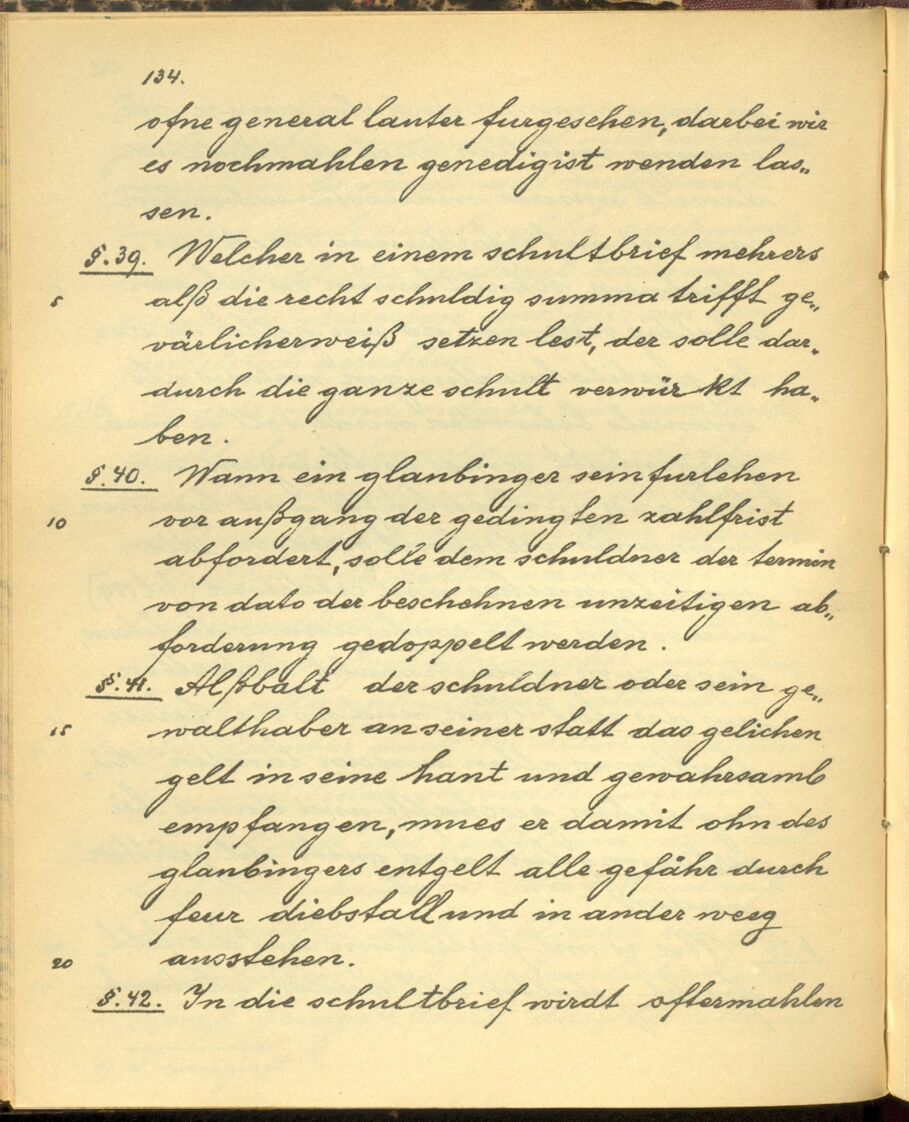 134.
ofne general lauter furgesehen, darbei wir
es nochmahlen genedigist wenden las„
sen.
§.39. Welcher in einem schultbrief mehrers
5 alß die recht schuldig summa trifft ge„
värlicherweiß setzen lest, der solle dar„
durch die ganze schult verwürkt ha„
ben.
§.40. Wann ein glaubinger sein furlehen
10 vor außgang der gedingten zahlfrist
abfordert, solle dem schuldner der termin
von dato der beschehnen unzeitigen ab„
forderung gedoppelt werden.
§.41. Alßbalt der schuldner oder sein ge„
15 walthaber an seiner statt das gelichen
gelt in seine hant und gewahrsamb
empfangen, mues er damit ohn des
glaubingers entgelt alle gefähr durch
feur diebstall und in ander weeg
20 ausstehen.
§.42. In die schultbrief wirdt oftermahlen